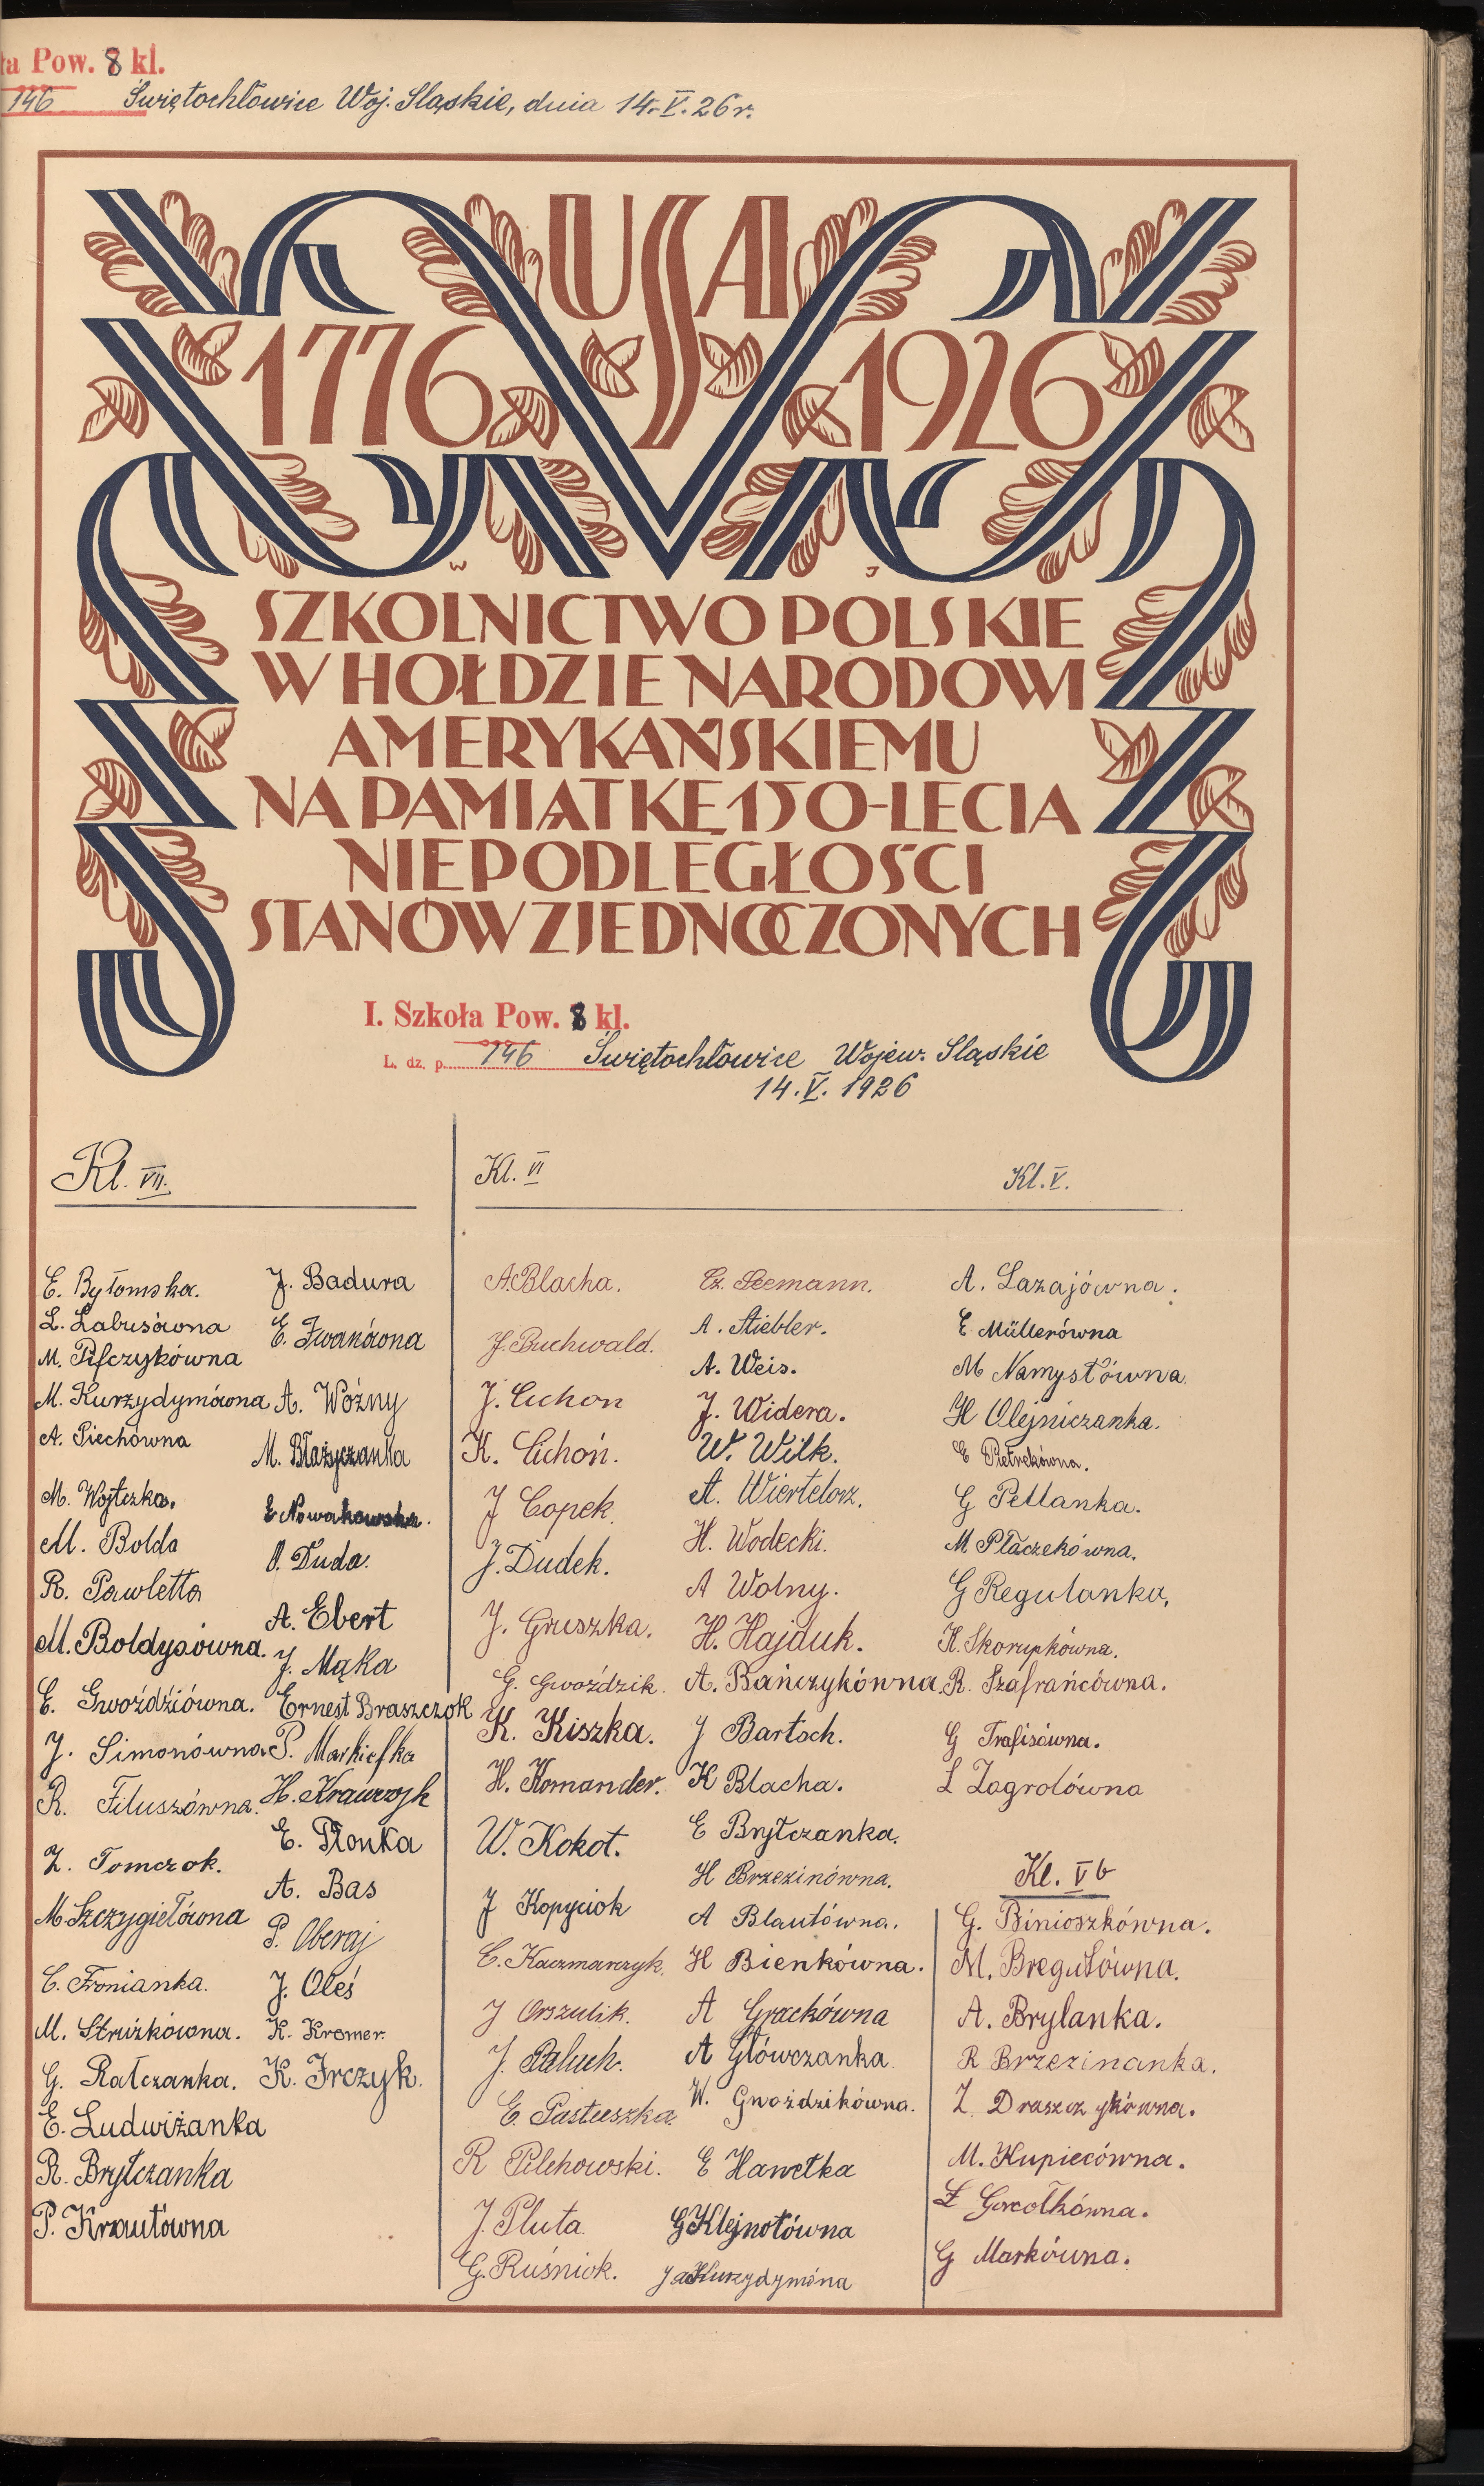 ła Pow. 8 kl.
146 Świętochłowice Woj. Sląskie, dnia 14.V.26r.
USA
1776 1926
W J
SZKOLNICTWO POLSKIE
W HOŁDZIE NARODOWI
AMERYKAŃSKIEMU
NA PAMIĄTKĘ 150-LECIA
NIEPODLEGŁOŚCI
STANÓW ZJEDNOCZONYCH
I. Szkoła Pow. 8 kl.
L. dz. p. 146 Świętochłowice Wojew. Sląskie
14.V. 1926
Kl. VII.
E. Bytomska.
L. Labusówna
M. Pifczykówna
M. Kurzydymówna
A. Piechówna
M. Wojtczka.
M. Bolda
R. Pawletta
M. Boldysówna.
E. Gwoździówna.
J. Simonówna
R. Filuszówna.
Z. Tomczok.
M. Szczygiełówna
C. Fronianka.
M. Stróżkówna.
G. Ratczanka.
E. Ludwiżanka
R. Brytczanka
P. Krautówna
J. Badura
E. Iwanówna
A. Woźny
M. Błażyczanka
E Nowakowska.
O. Duda.
A. Ebert
J. Mąka
Ernest Braszczok
P. Markiefka
H. Krawczyk
E. Płonka
A. Bas
P. Oberaj
J. Oleś
K. Kromer.
K. Irczyk.
Kl. VI
A. Blacha.
J. Buchwald.
J. Cichon
K. Cichoń.
J Copek.
J. Dudek.
J. Gruszka.
G. Gwoździk.
K. Kiszka.
H. Komander.
W. Kokot.
J Kopyciok
C. Kaczmarczyk.
J Orszulik.
J. Paluch.
E. Pastuszka
R Pilchowski.
J. Pluta.
G. Ruśniok.
Cz. Seemann.
A. Stiebler.
A. Weis.
J. Widera.
W. Wilk.
A. Wiertelorz.
H. Wodecki.
A Wolny.
H. Hajduk.
A. Bańczykówna
J Bartoch.
K Blacha.
E Brytczanka.
H Brzezinówna.
A Blautówna.
H Bienkówna.
A Grackówna
A Główczanka
W. Gwoździkówna.
E Hawelka
G Klejnotówna
Kl. V.
A. Lazajówna.
E Müllerówna
M Namysłówna.
H Olejniczanka.
E Pietrekówna.
G Petlanka.
M Płaczekówna.
G Regulanka,
K. Skorupkówna.
R. Szafrańcówna.
G Trafisówna.
L Zagrolówna
Kl. Vb
G. Binioszkówna.
M. Bregułówna.
A. Brylanka.
R Brzezinanka.
Z. Draszczykówna.
M. Kupiecówna.
Ł Gorcolkówna.
G Markówna.